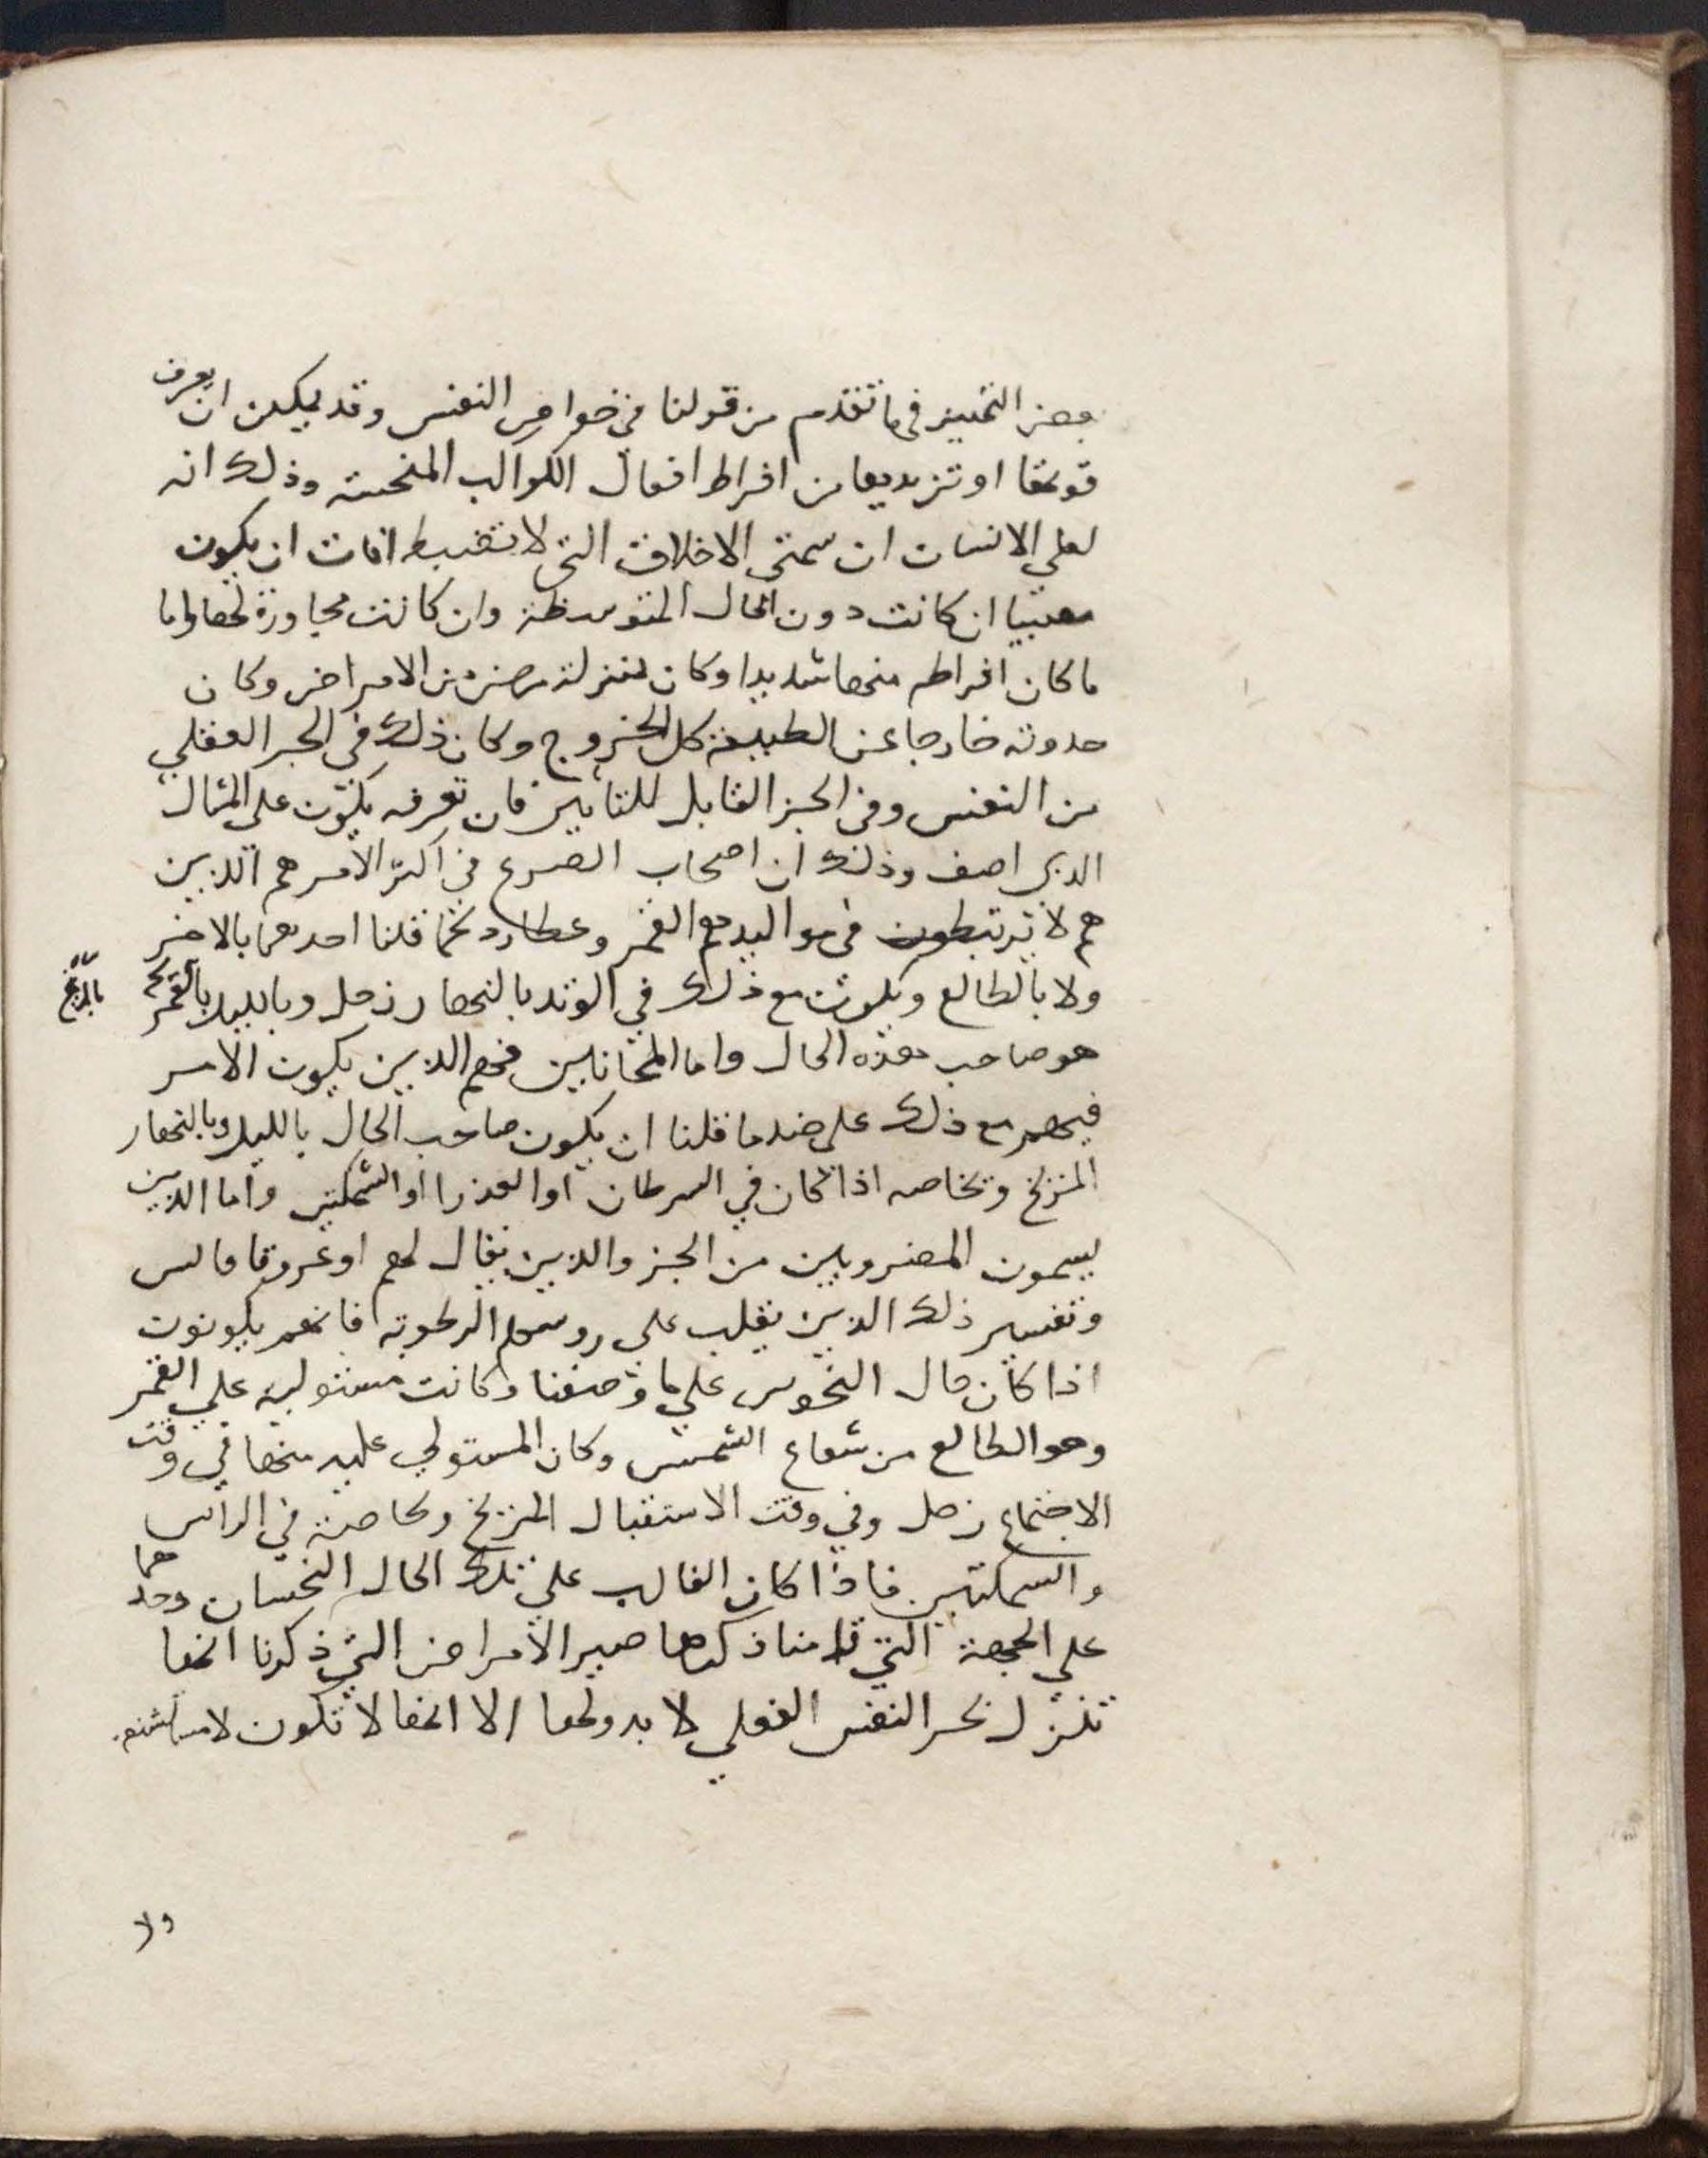 بعض التمييز في ما تقدم من قولنا في خواص النفس وقد يمكن ان يعرف
قوتها او تزيدها من افراط افعال الكواكب المنحسة وذلك انه
لعلي الانسان ان سمتى الاخلاق التى لا تضبط افات ان يكون
معتبا ان كانت دون الحال المتوسطة وان كانت مجاوزة لها واما
ما كان افراطه منها شديدا وكان بمنزلة مرض من الامراض وكان
حدوثه خارجا عن الطبيعة كل الخروج وكان ذلك في الجز العقلي
من النفس وفي الجز القابل للتاثير فان تعرفه يكون على المثال
الذي اصف وذلك ان اصحاب الصرع في اكثر الامر هم الذين
هم لا يرتبطون في مواليدهم القمر وعطارد كما قلنا احدهما بالاخر
ولا بالطالع ويكون مع ذلك في الوتد بالنهار زحل وبالليل بالقمر
بالمريخ
هو صاحب هذه الحال واما المجانين فهم الذين يكون الامر
فيهم مع ذلك على ضد ما قلنا ان يكون صاحب الحال بالليل وبالنهار
المريخ وبخاصه اذا كان في السرطان او العذرا او السمكتين واما الذين
يسمون المضروبين من الجن والذين يقال لهم اوغروقافالس
وتفسير ذلك الذين يغلب على روسهم الرطوبه فانهم يكونون
اذا كان حال النحوس على ما وصفنا وكانت مستوليه علي القمر
وهو الطالع من شعاع الشمس وكان المستولي عليه منها في وقت
الاجتماع زحل وفي وقت الاستقبال المريخ وبخاصة في الرامي
والسمكتين فاذا كان الغالب على تلك الحال النحسان وحدهما
علي الجهة التي قدمنا ذكرها صير الامراض التي ذكرنا انها
تنزل بجز النفس العقلي لا بدو لها الا انها لا تكون
ولا